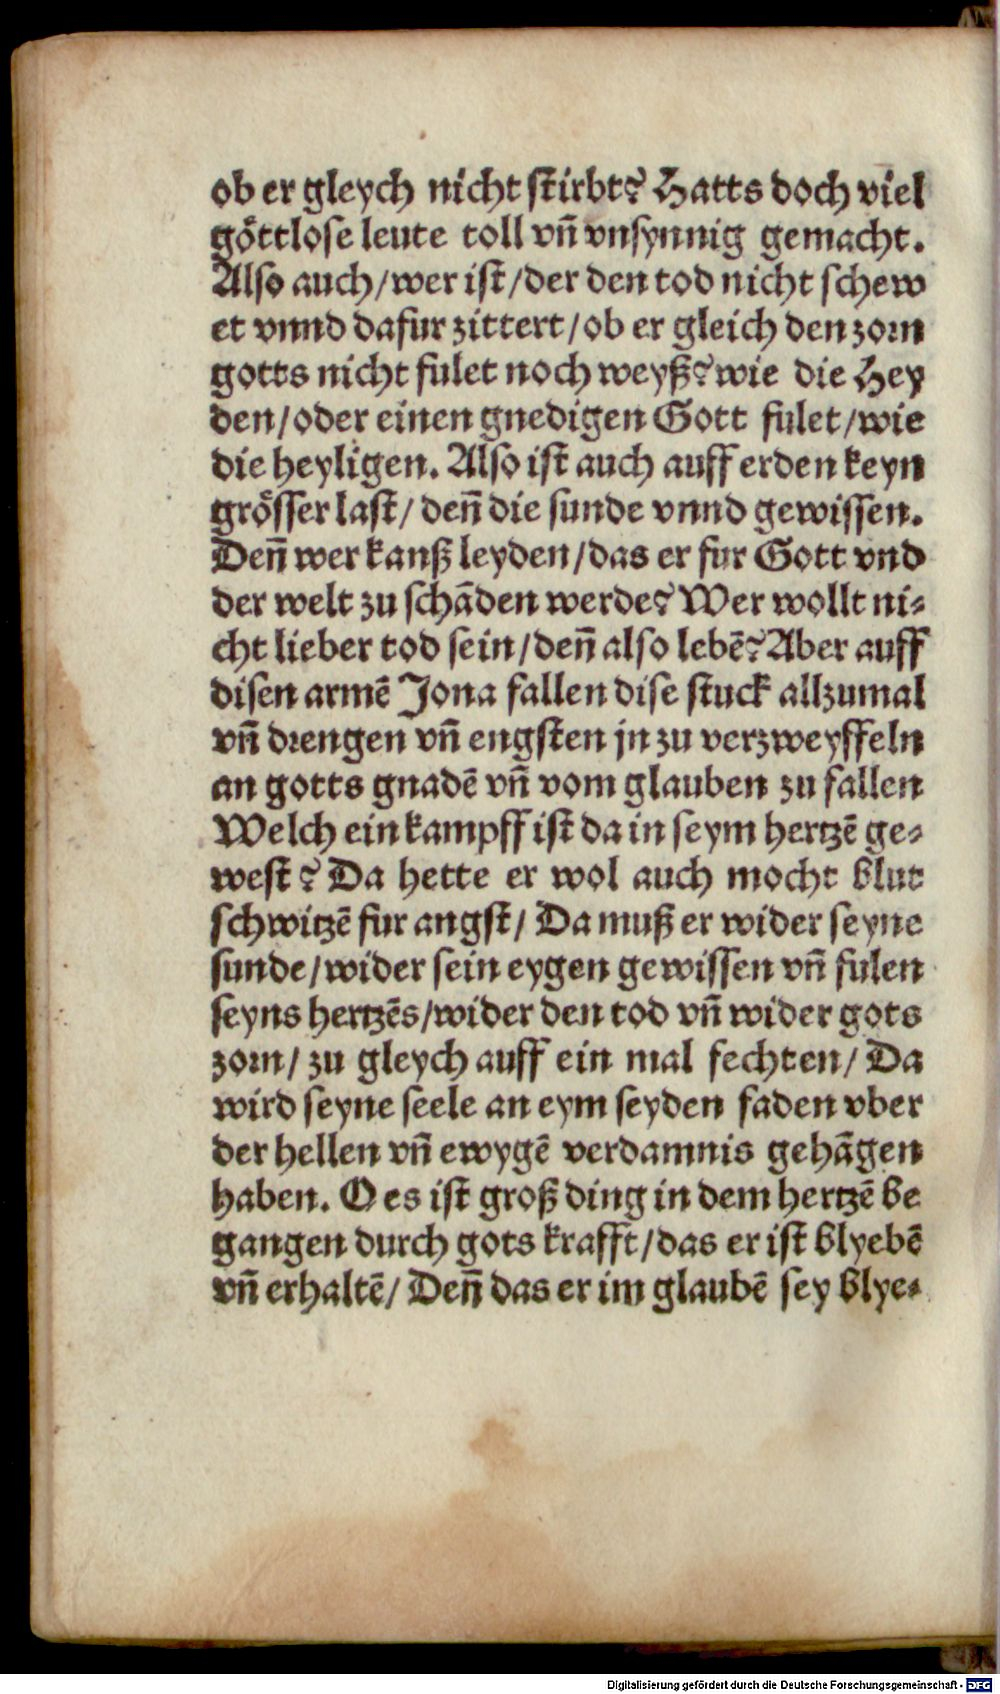 ob er gleych nicht stirbt? Hatts doch viel
göttlose leute toll vn̄ vnsynnig gemacht.
Also auch/wer ist/der den tod nicht schew
et vnnd dafur zittert/ob er gleich den zorn
gotts nicht fulet noch weyß? wie die Hey
den/oder einen gnedigen Gott fulet/wie
die heyligen. Also ist auch auff erden keyn
grösser last/ den̄ die sunde vnnd gewissen.
Den̄ wer kanß leyden/das er fur Gott vnd
der welt zu schāden werde? Wer wollt ni-
cht lieber tod sein/den̄ also lebē? Aber auff
disen armē Jona fallen dise stuck allzumal
vn̄ drengen vn̄ engsten jn zu verzweyffeln
an gotts gnadē vn̄ vom glauben zu fallen
Welch ein kampff ist da in seym hertzē ge-
west? Da hette er wol auch mocht blut
schwitzē fur angst/ Da muß er wider seyne
sunde/wider sein eygen gewissen vn̄ fulen
seyns hertzēs/wider den tod vn̄ wider gots
zorn/ zu gleych auff ein mal fechten/ Da
wird seyne seele an eym seyden faden vber
der hellen vn̄ ewygē verdamnis gehāgen
haben. O es ist groß ding in dem hertzē be
gangen durch gots krafft/das er ist blyebē
vn̄ erhaltē/ Den̄ das er im glaubē sey blye-
Digitalisierung gefördert durch die Deutsche Forschungsgemeinschaft - DFG